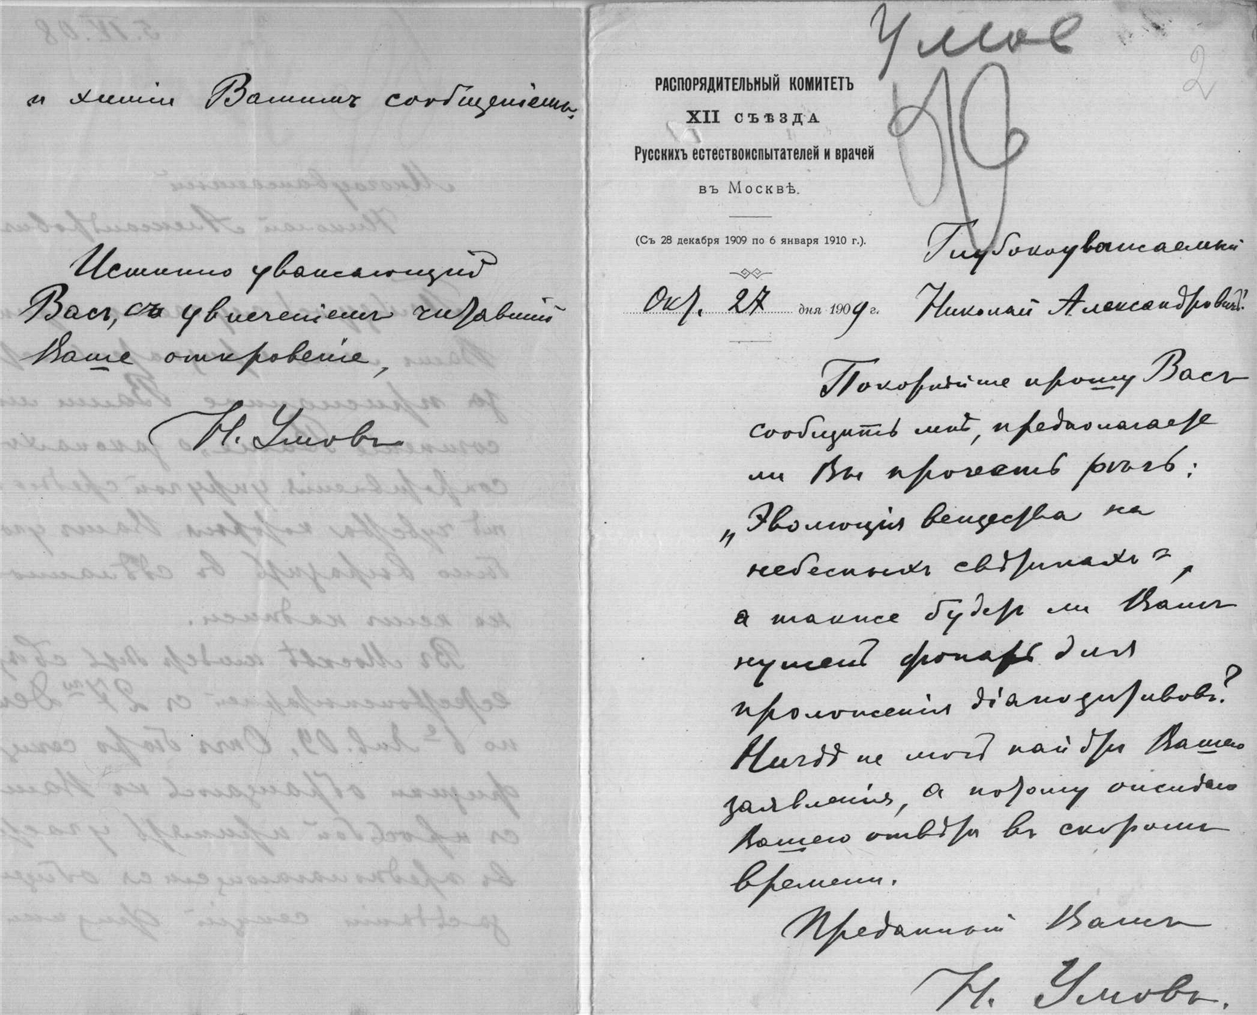 и химіи Вашимъ сообщеніемъ.
Истинно уважающій
Васъ, съ увлеченіемъ читавшій
Ваше откровеніе,
Н. Умовъ
Умов
2
РАСПОРЯДИТЕЛЬНЫЙ КОМИТЕТЪ
XII СЪѢЗДА
Русскихъ естествоиспытателей и врачей
въ Москвѣ.
(Съ 28 декабря 1909 по 6 января 1910 г.).
Окт. 27 дня 1909 г.
Глубокоуважаемый
Николай Александровичъ!
Покорнѣйше прошу Васъ
сообщить мнѣ, предполагаете
ли Вы прочесть рѣчь:
„Эволюція вещества на
небесныхъ свѣтилахъ“,
а также будетъ ли Вамъ
нуженъ фонарь для
проложенія діапозитивовъ?
Нигдѣ не могъ найти Вашего
заявленія, а потому ожидаю
Вашего отвѣта въ скоромъ
времени.
Преданный Вамъ
Н. Умовъ.